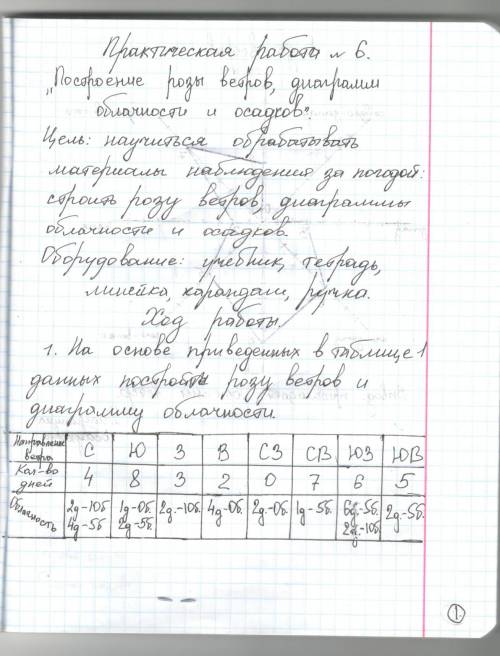 Практическая работа № 6.
„Построение розы ветров, диаграмм
облачности и осадков".
Цель: научиться обрабатывать
материалы наблюдений за погодой:
строить розу ветров, диаграммы
облачности и осадков.
Оборудование: учебник, тетрадь,
линейка, карандаш, ручка.
Ход работы.
1. На основе приведенных в таблице 1
данных построить розу ветров и
диаграмму облачности.
Направление ветра С Ю З В СЗ СВ ЮЗ ЮВ
Кол-во дней 4 8 3 2 0 7 6 5
Облачность 2д-10б 1д-0б. 2д.-10б. 4д-0б. 2д.-0б. 1д-5б. 6д.-5б. 2д.-5б.
4д-5б 2д-5б. 2д.-10б.
1.